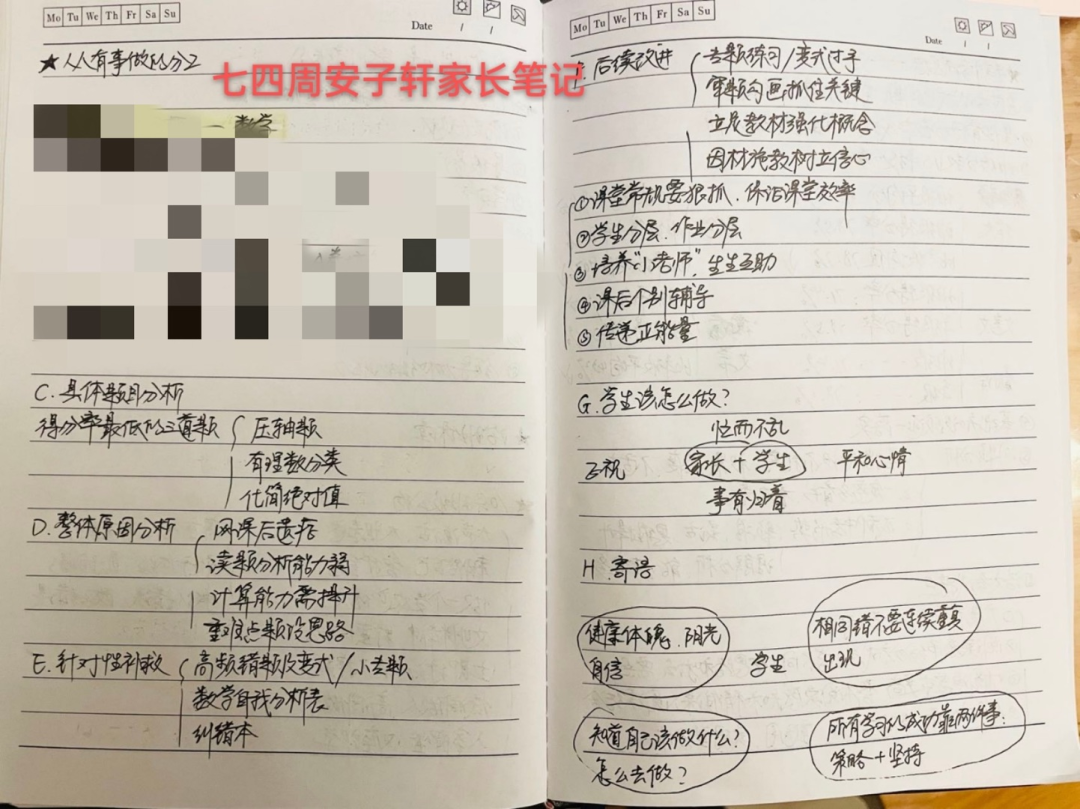 Mo Tu We Th Fr Sa Su
Date
★人人有事做的分工
七四周安子轩家长笔记
数学
C.具体题目分析
得分率最低的三道题 压轴题
有理数分类
化简绝对值
D.整体原因分析 网课后遗症
读题分析能力弱
计算能力需提升
重难点题没思路
E.针对性补救 高频错题及变式/小专题
数学自我分析表
纠错本
Mo Tu We Th Fr Sa Su
Date
F.后续改进 专题练习/变式过手
审题勾画抓住关键
立足教材强化概念
因材施教树立信心
①课堂常规要狠抓.保证课堂效率
②学生分层.作业分层
③培养"小老师",生生互助
④课后个别辅导
⑤传递正能量
G.学生该怎么做?
忙而不乱
正视 家长+学生 平和心情
事有归着
H.寄语
健康体魄.阳光
自信
相同错不要连续重复
出现
学生
知道自己该做什么?
怎么去做?
所有学习的成功靠两件事:
策略+坚持